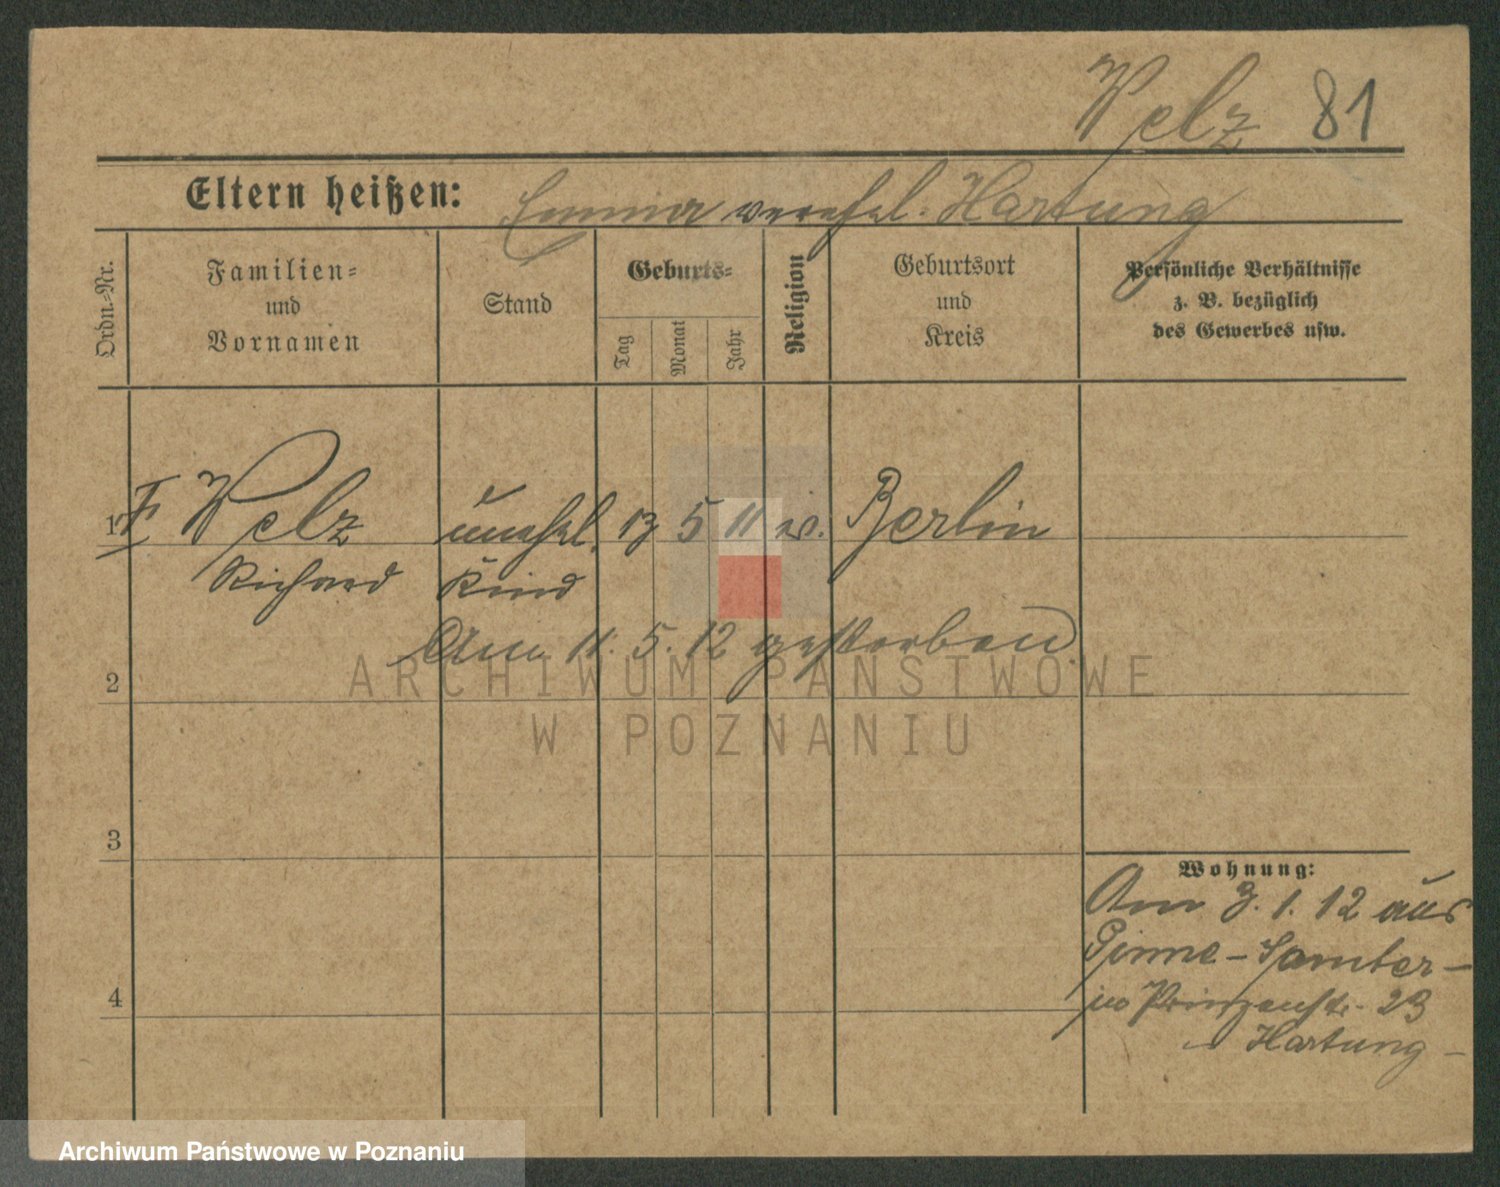 Welz 81
Eltern heißen: Emma verehel. Hartung
Ordn.-Nr.
Familien-
und
Vornamen
Stand
Geburts-
Tag
Monat
Jahr
Religion
Geburtsort
und
Kreis
Persönliche Verhältnisse
z. B. bezüglich
des Gewerbes usw.
1 F Welz unehel. 13 5 11 ev. Berlin
Richard Kind
Am 11. 5. 12 gestorben
2
3
4
Wohnung:
Am 3. 1. 12 aus
Pinne - Samter -
in Prinzenstr. 23
Hartung -
ARCHIWUM PAŃSTWOWE
W POZNANIU
Archiwum Państwowe w Poznaniu